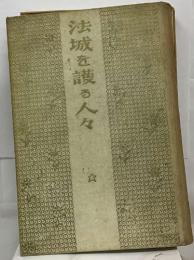 法城を護る人々